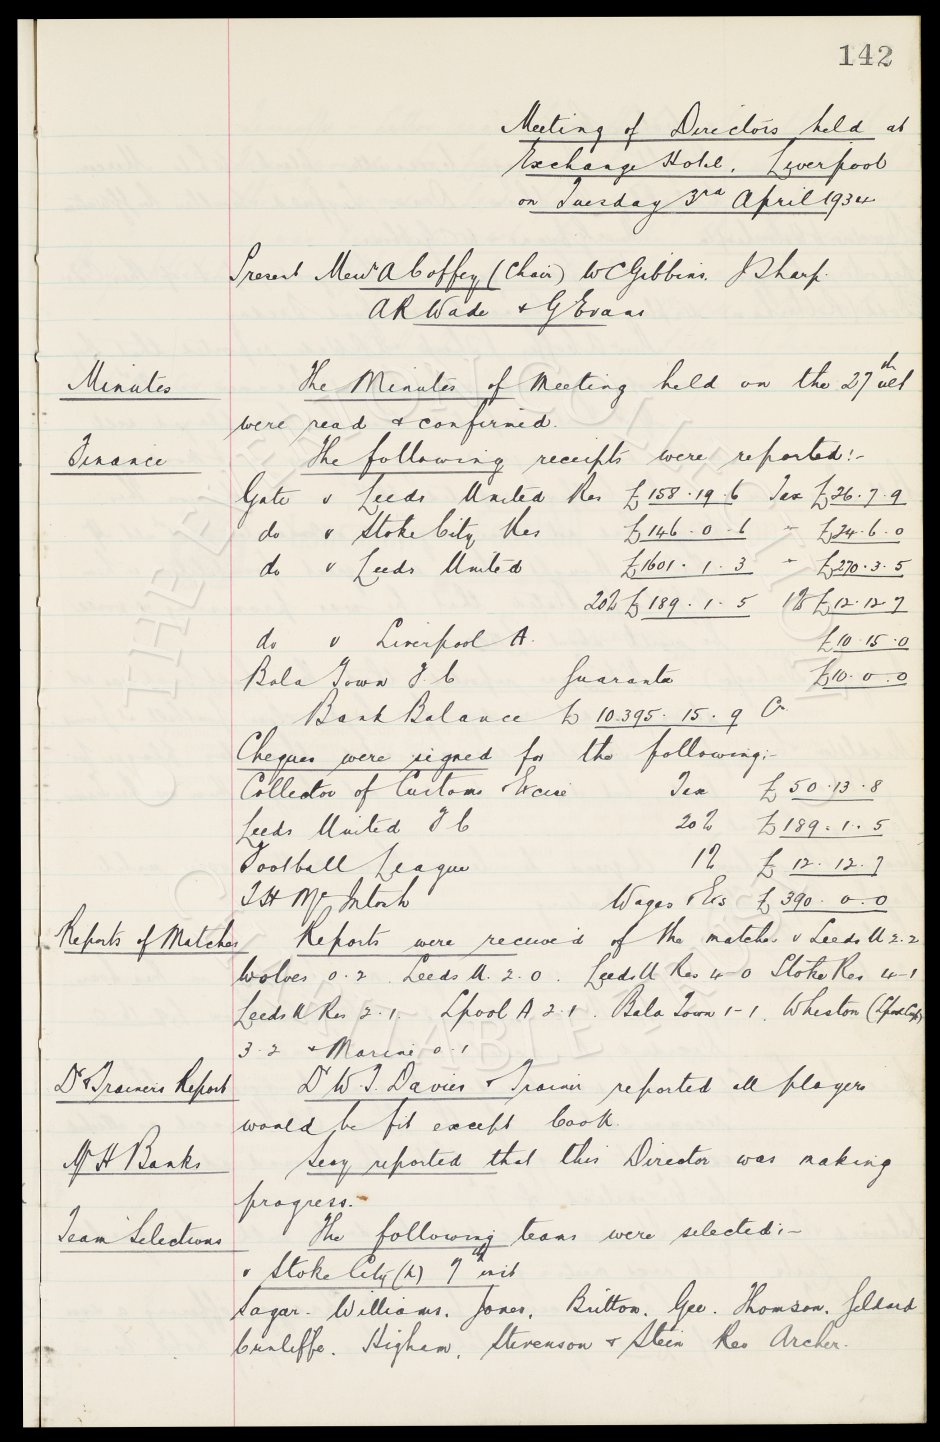 142
Meeting of Directors held at
Exchange Hotel, Liverpool
on Tuesday 3rd April 1934
Present Messrs A Coffey (Chair) W C Gibbins. J Sharp.
A R Wade & G Evans
Minutes
The Minutes of Meeting held on the 27th ult
were read & confirmed.
Finance
The following receipts were reported:-
Gate v Leeds United Res £158.19.6 Tax £26.7.9
do v Stoke City Res £146.0.6 " £24.6.0
do v Leeds United £1601.1.3 " £270.3.5
20% £189.1.5 1% £12.12.7
do v Liverpool A. £10.15.0
Bala Town F.C Guarantee £10.0.0
Bank Balance £10.395.15.9 Cr
Cheques were signed for the following:-
Collector of Customs & Excise Tax £50.13.8
Leeds United F C 20% £189.1.5
Football League 1% £12.12.7
T H McIntosh Wages & Exs £390.0.0
Reports of Matches
Reports were received of the matches v Leeds U 2.2
Wolves 0.2. Leeds U. 2.0. Leeds U Res 4-0 Stoke Res 4-1
Leeds U Res 2.1. Lpool A 2.1. Bala Town 1-1. Whiston (Lpool Cup)
3.2 & Marine 0.1
Dr & Trainers Report
Dr W.T. Davies & Trainer reported all players
would be fit except Cook.
Mr H Banks
Secy reported that this Director was making
progress.-
Team Selections
The following teams were selected:-
v Stoke City (h) 7th inst
Sagar. Williams. Jones. Britton. Gee. Thomson. Geldard
Cunliffe. Higham. Stevenson & Stein Res Archer.
THE EVERTON COLLECTION
CHARITABLE TRUST